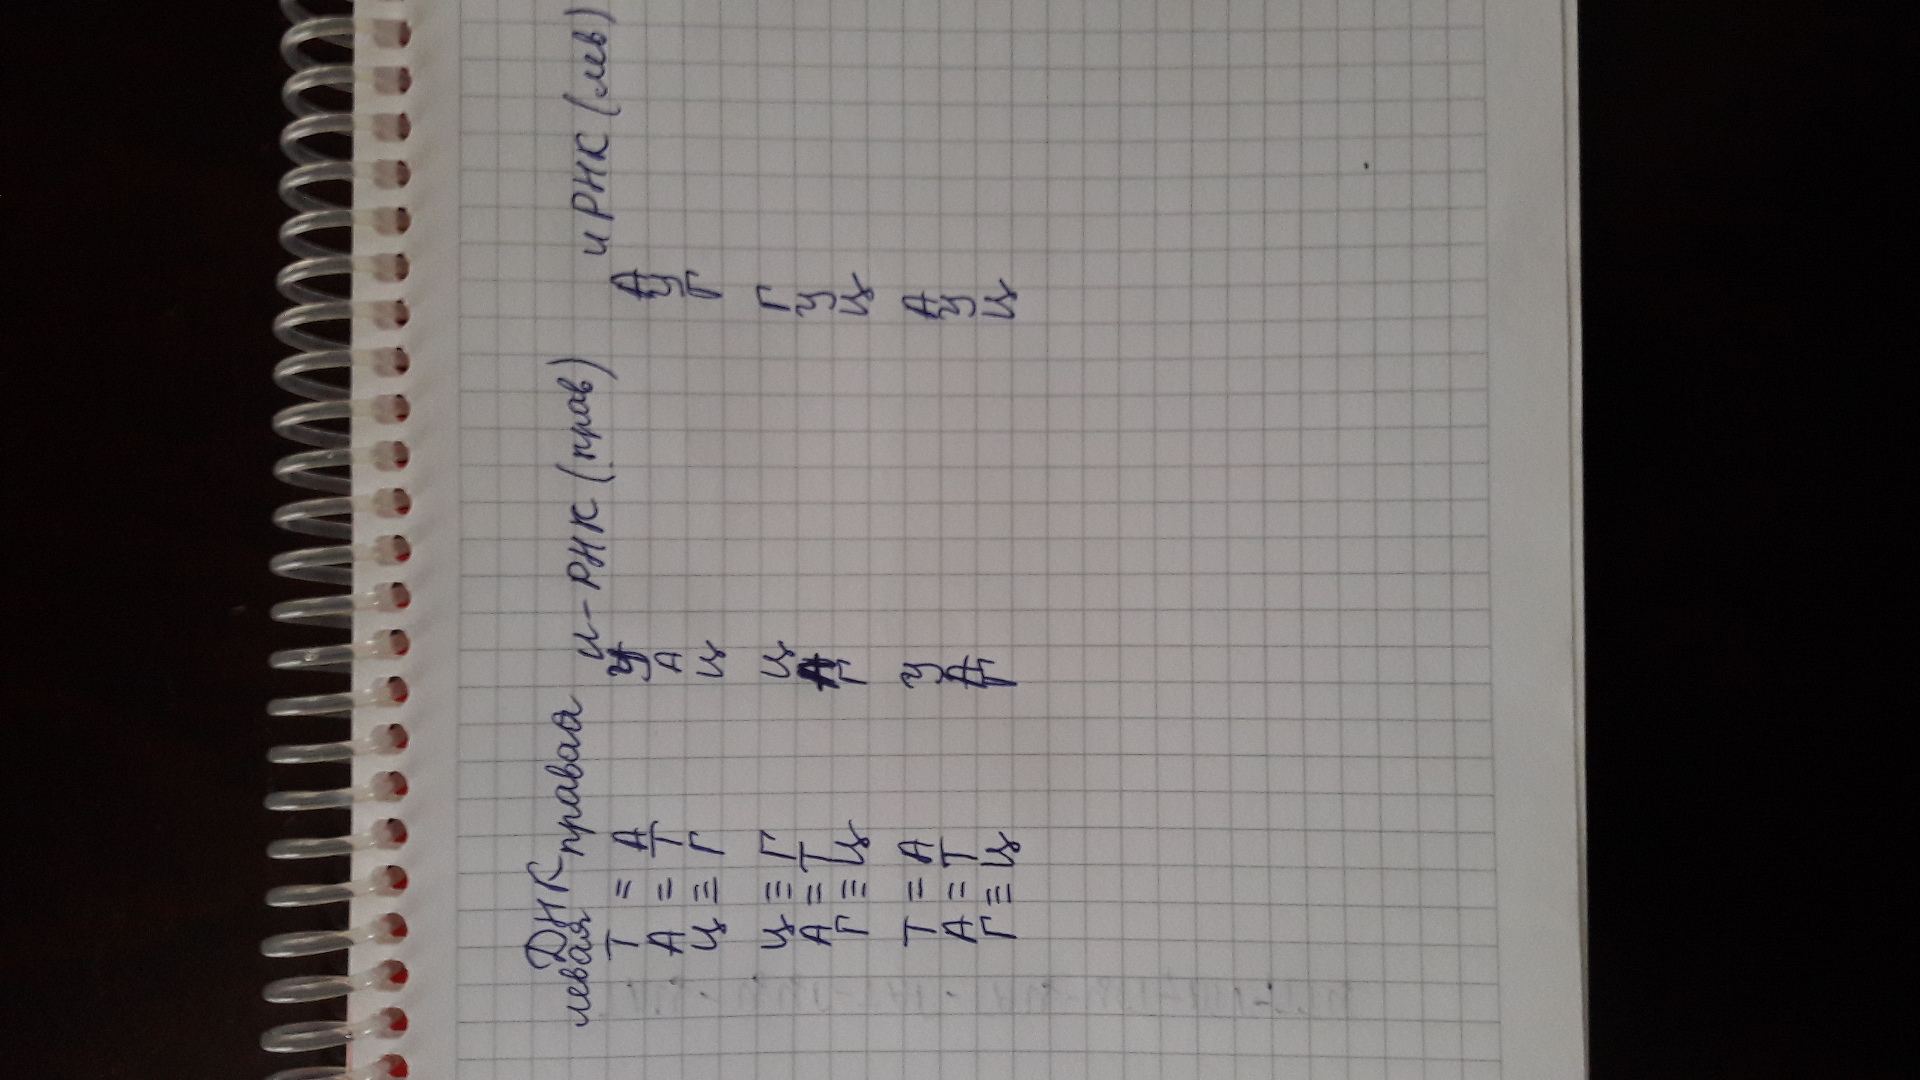 ДНК и-РНК (прав) иРНК (лев)
левая правая
Т = А У А
А = Т А У
Ц ≡ Г Ц Г
Ц ≡ Г Ц Г
А = Т А У
Г ≡ Ц Г Ц
Т = А У А
А = Т А У
Г ≡ Ц Г Ц